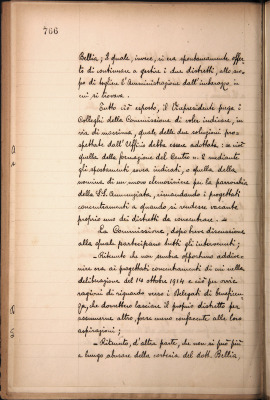 766
Bellia, il quale, invece, si era spontaneamente offer-
to di continuare a gestire i due distretti, allo sco-
po di togliere l'Amministrazione dall'imbarazzo in
cui si trovava.
Tutto ciò esposto, il Vicepresidente prega i
Colleghi della Commissione di voler indicare, in
via di massima, quale delle due soluzioni pro-
spettate dall'Ufficio debba essere adottata: se cioè
quella della formazione del Centro N. 2 mediante
gli spostamenti sovra indicati, o quella della
nomina di un nuovo elemosiniere per la parrocchia
della SS. Annunziata, rimandando i progettati
concentramenti a quando si rendesse vacante
proprio uno dei distretti da concentrare. =
La Commissione, dopo breve discussione
alla quale partecipano tutti gli intervenuti;
- Ritenuto che non sembra opportuno addive-
nire ora ai progettati concentramenti di cui nella
deliberazione del 14 ottobre 1914 e ciò per ovvie
ragioni di riguardo verso i Delegati di beneficen-
za, che dovrebbero lasciare il proprio distretto per
assumerne altro, forse meno confacente alle loro
aspirazioni;
- Ritenuto, d'altra parte, che non si può più
a lungo abusare della cortesia del dott. Bellia,